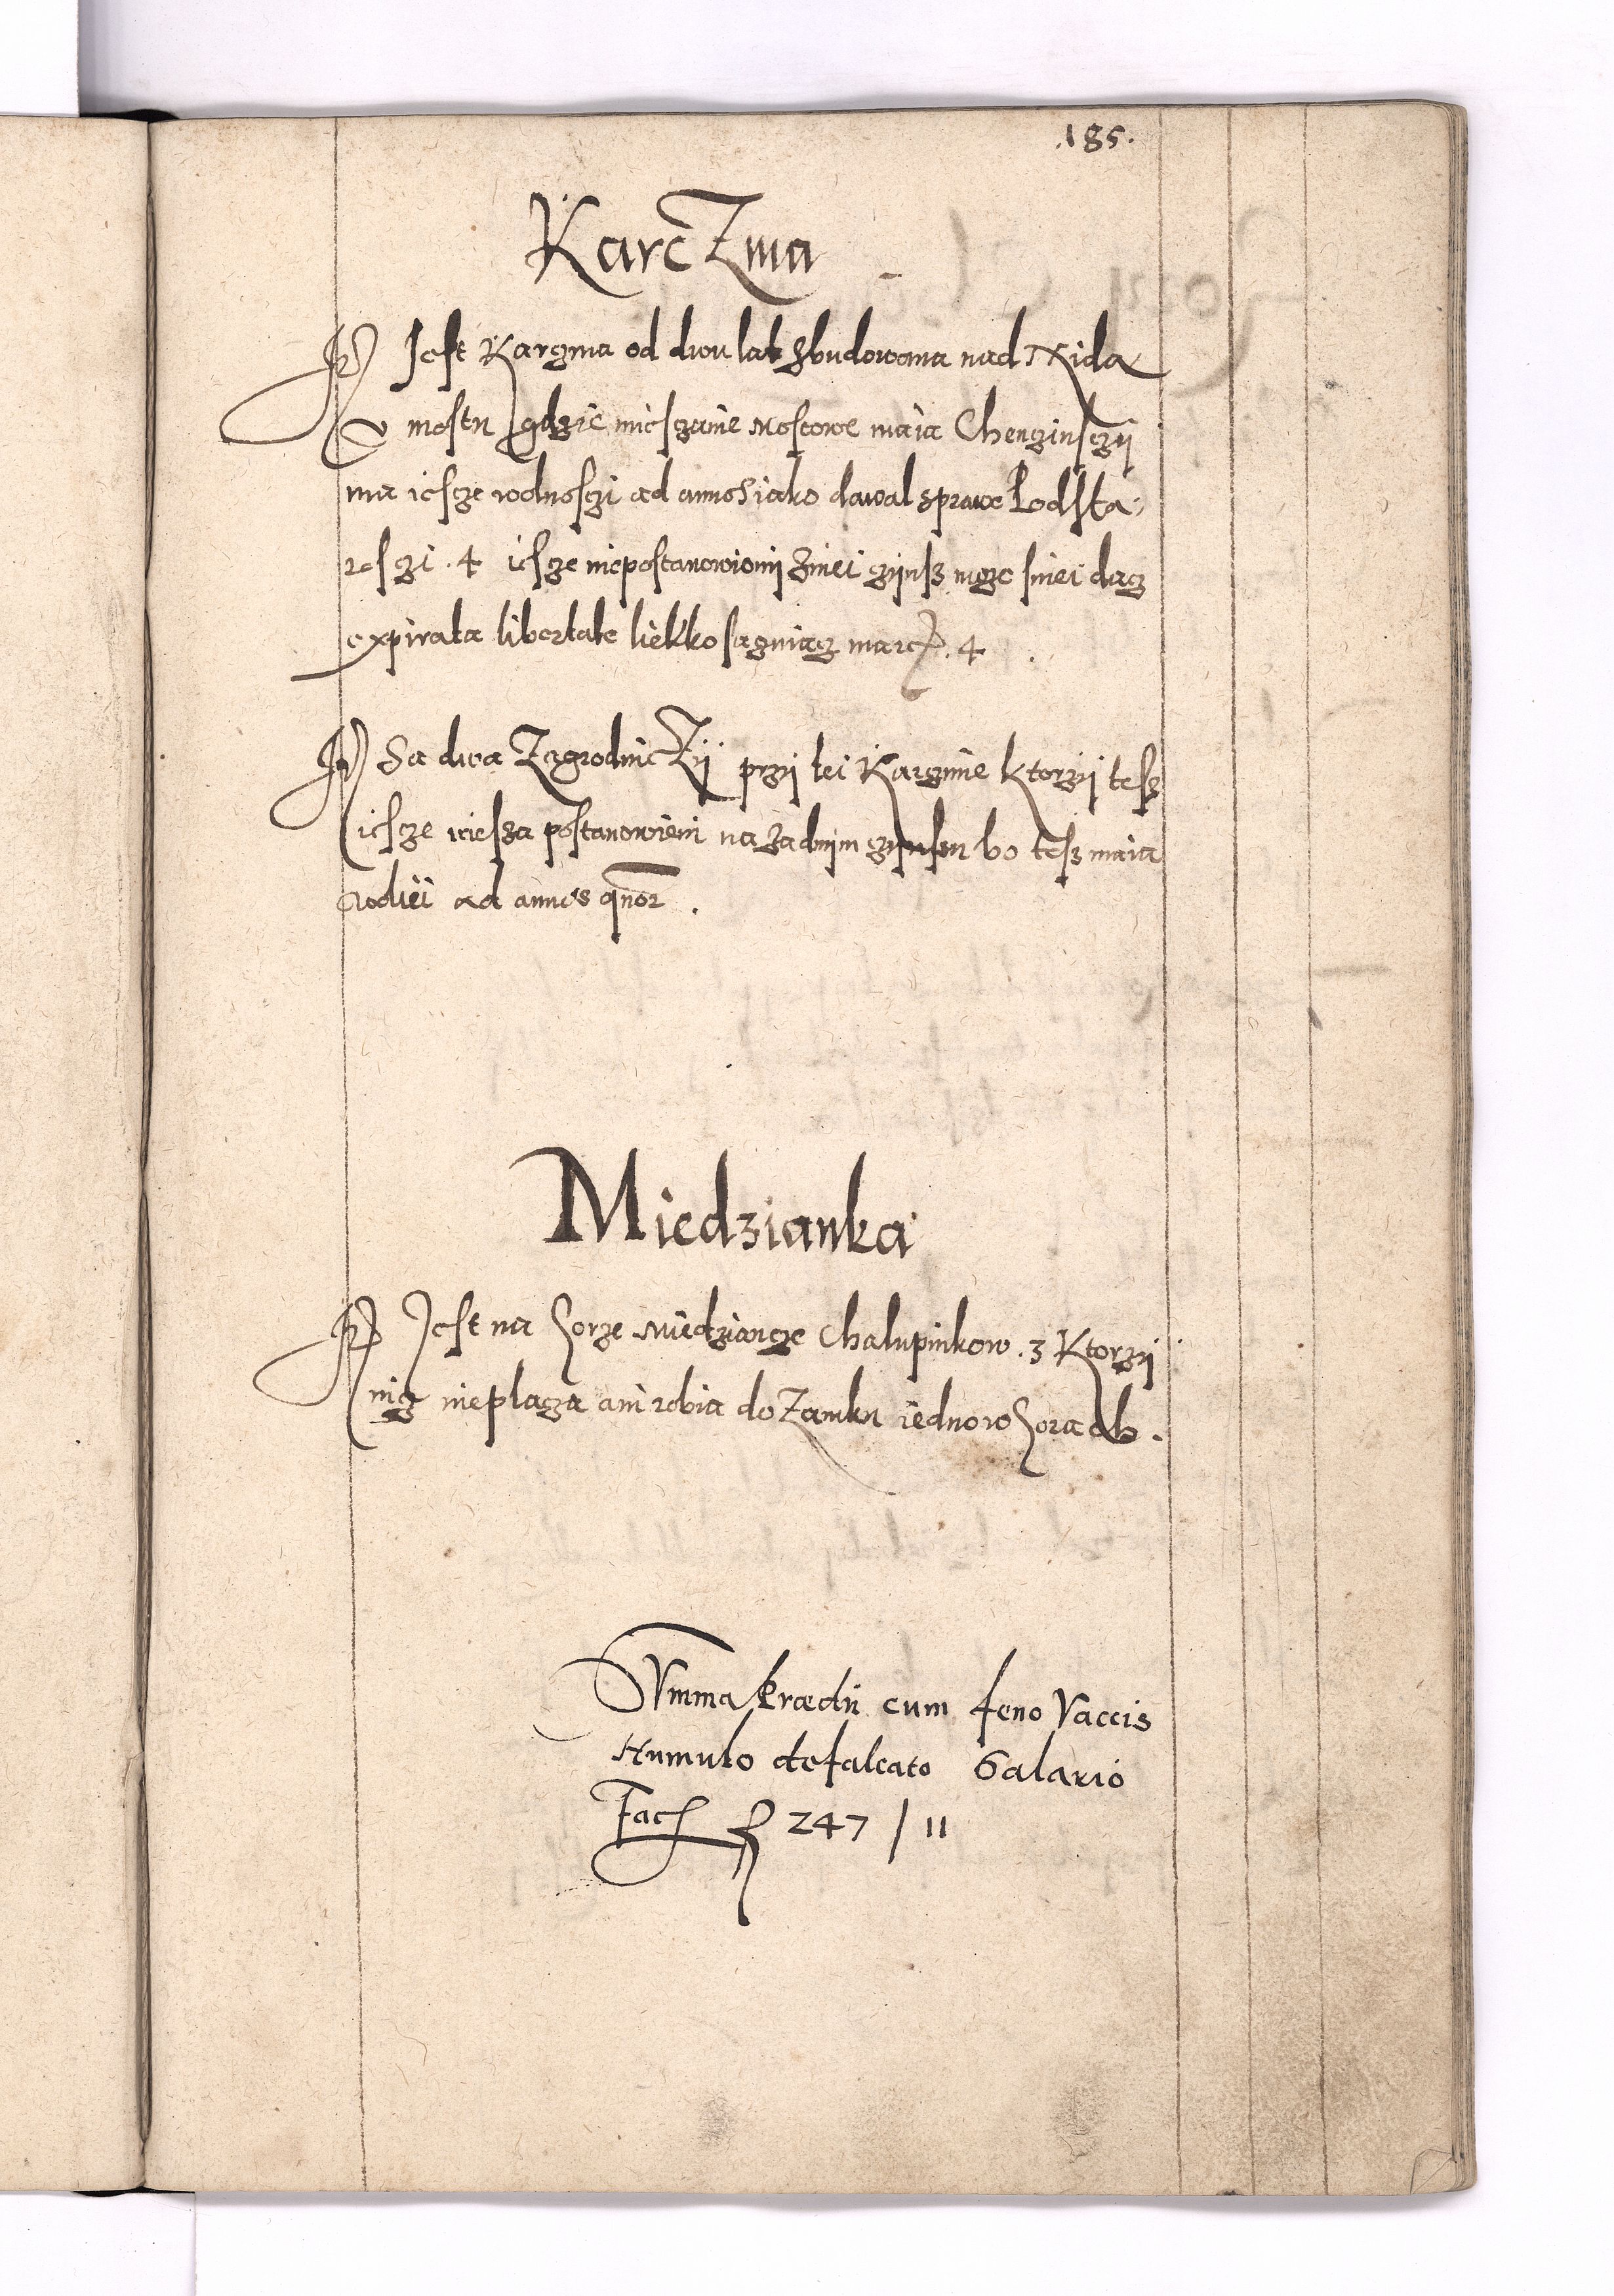 .185.
KarcZma
Jt Jest Karczma od dwu lat zbudowana nad Nida
v mostu gdzie miesczanie Mostowe maia Chenzinsczij
ma iescze wolnosczi ad annos iako dawal sprawe Podsta-
rosczi .4 iescze niepostanowionij zniei czijnsz moze sniei dacz
expirata libertate liekko saczuiacz marcas .4
Jt Sa dwa ZagrodnicZij przij tei Karczmie ktorzij tesz
iescze niesza postanowieni na zadnijm czijnszu bo tesz maia
wolei ad annos quor .
Miedzianka
Jt Jest na Gorze Miedziancze Chalupnikow .3 Ktorzij
nicz nieplacza ani robia do Zamku iedno w Gorach .
SVmma Prædii cum feno Vaccis
Humulo defalcato Salario
Facit fl 247 / 11